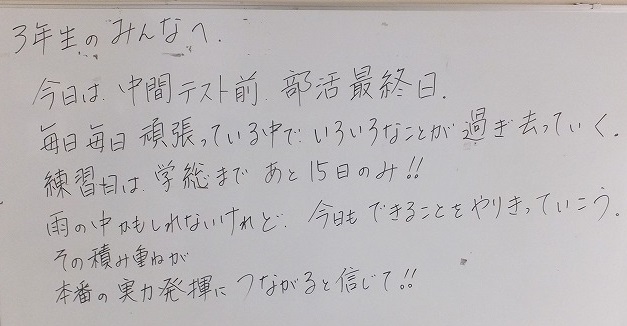 3年生のみんなへ.
今日は.中間テスト前.部活最終日.
毎日毎日頑張っている中で.いろいろなことが過ぎ去っていく.
練習日は.学総まであと15日のみ!!
雨の中かもしれないけれど.今日もできることをやりきっていこう.
その積み重ねが
本番の実力発揮につながると信じて!!